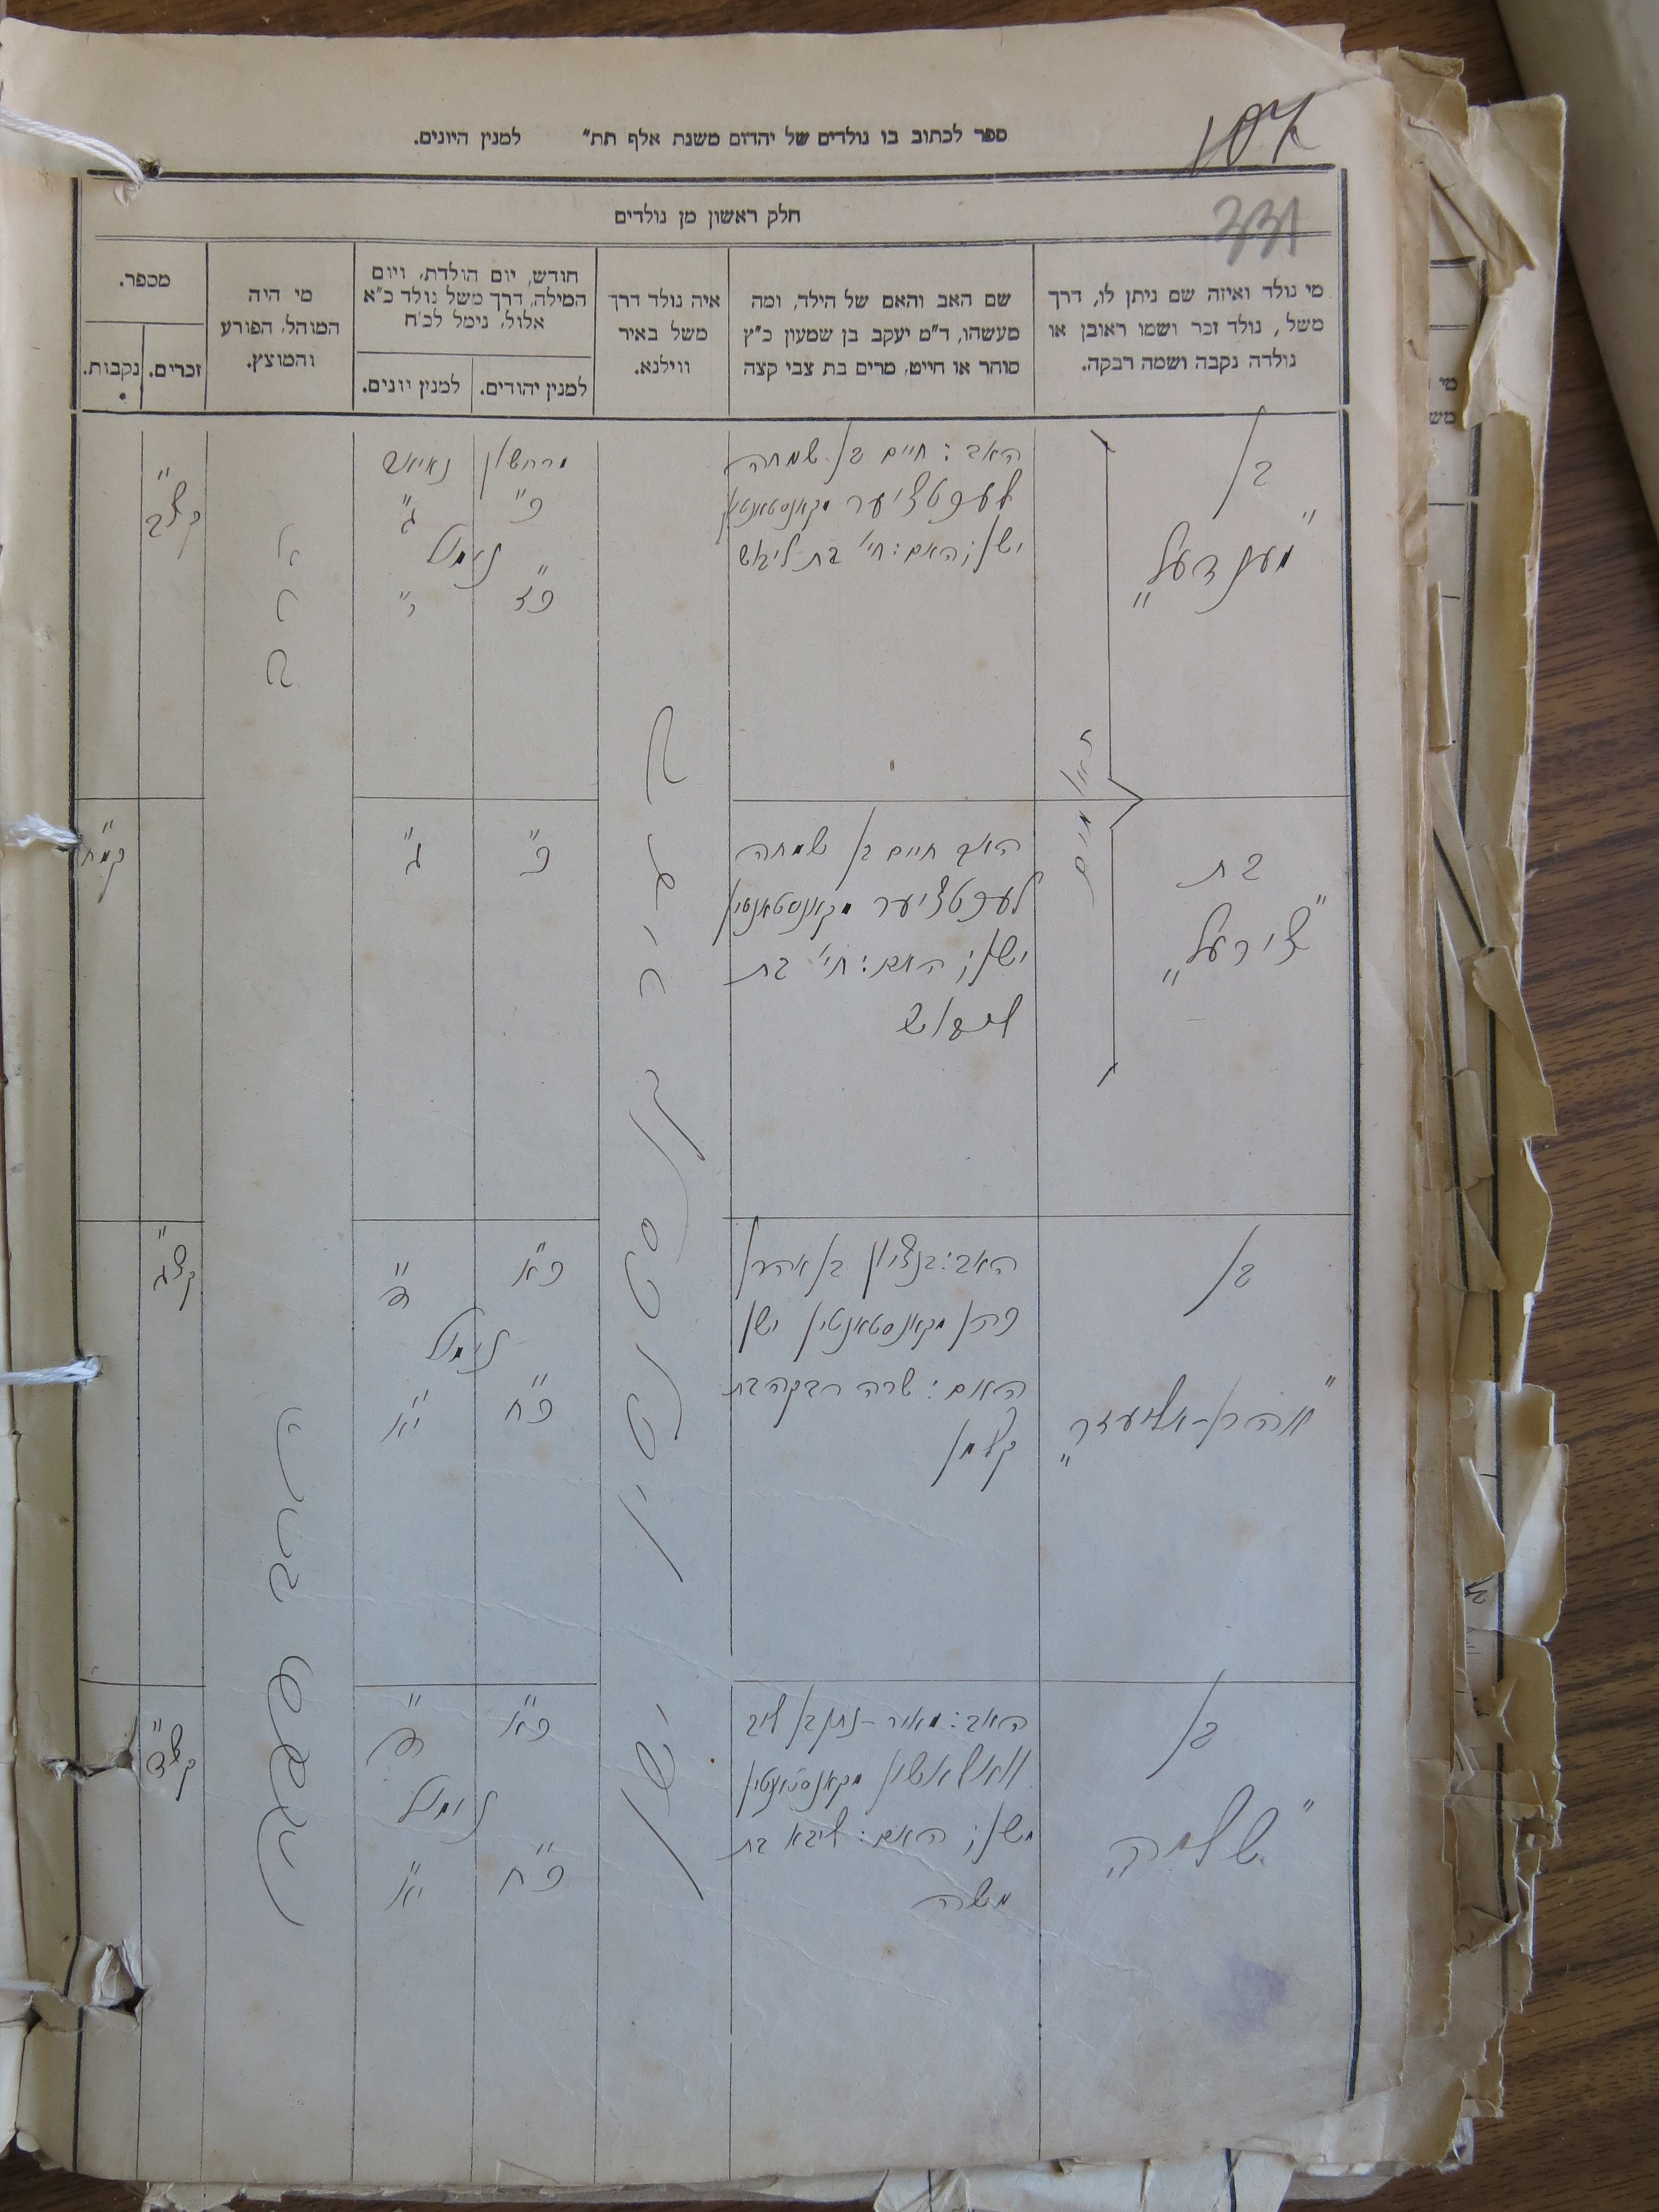 107
ספר לכתוב בו נולדים של יהדום משנת אלף תת" למנין היונים.
331
חלק ראשון מן נולדים
מי נולד ואיזה שם ניתן לו, דרך
משל, נולד זכר ושמו ראובן או
נולדה נקבה ושמה רבקה.
שם האב והאם של הילד, ומה
מעשהו, ד"מ יעקב בן שמעון כ"ץ
סוחר או חייט, מרים בת צבי קצה
איה נולד דרך
משל באיר
ווילנא.
חודש, יום הולדת, ויום
המילה, דרך משל נולד כ"א
אלול, נימל לכ"ח
למנין יהודים.
למנין יונים.
מי היה
המוהל, הפורע
והמוצץ.
מספר.
זכרים.
נקבות.
בן
"מענדעל"
האב: חיים בן שמחה
מקאנסטאנטין
ישן; האם: חי' בת ליבוש
מרחשון
כ"
נימול
כ"ז
ג"
י"
קצ"ב
תאומים
בת
"צירעל"
האב חיים בן שמחה
מקאנסטאנטין
ישן; האם: חי' בת
ליבוש
כ"
ג"
קמ"ח
בעיר קנסטנטין ישן
בן
"אהרן-אליעזר"
האב: בנציון בן אהרן
כהן מקאנסטאנטין ישן
האם: שרה רבקה בת
קלמן
כ"א
ד"
נימול
כ"ח
י"א
קצ"ג
בן
"שלמה
האב: מאיר-נתן בן ליב
מקאנסטאנטין
ישן; האם: ליבא בת
משה
כ"א
ד"
נימול
כ"ח
י"א
קצ"ד